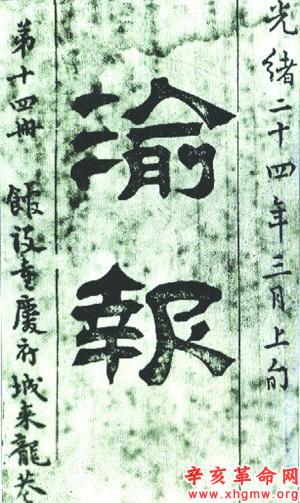 光緒二十四年三月上旬
渝報
第十四冊 館設重慶府城來龍巷
辛亥革命网
www.xhgmw.org